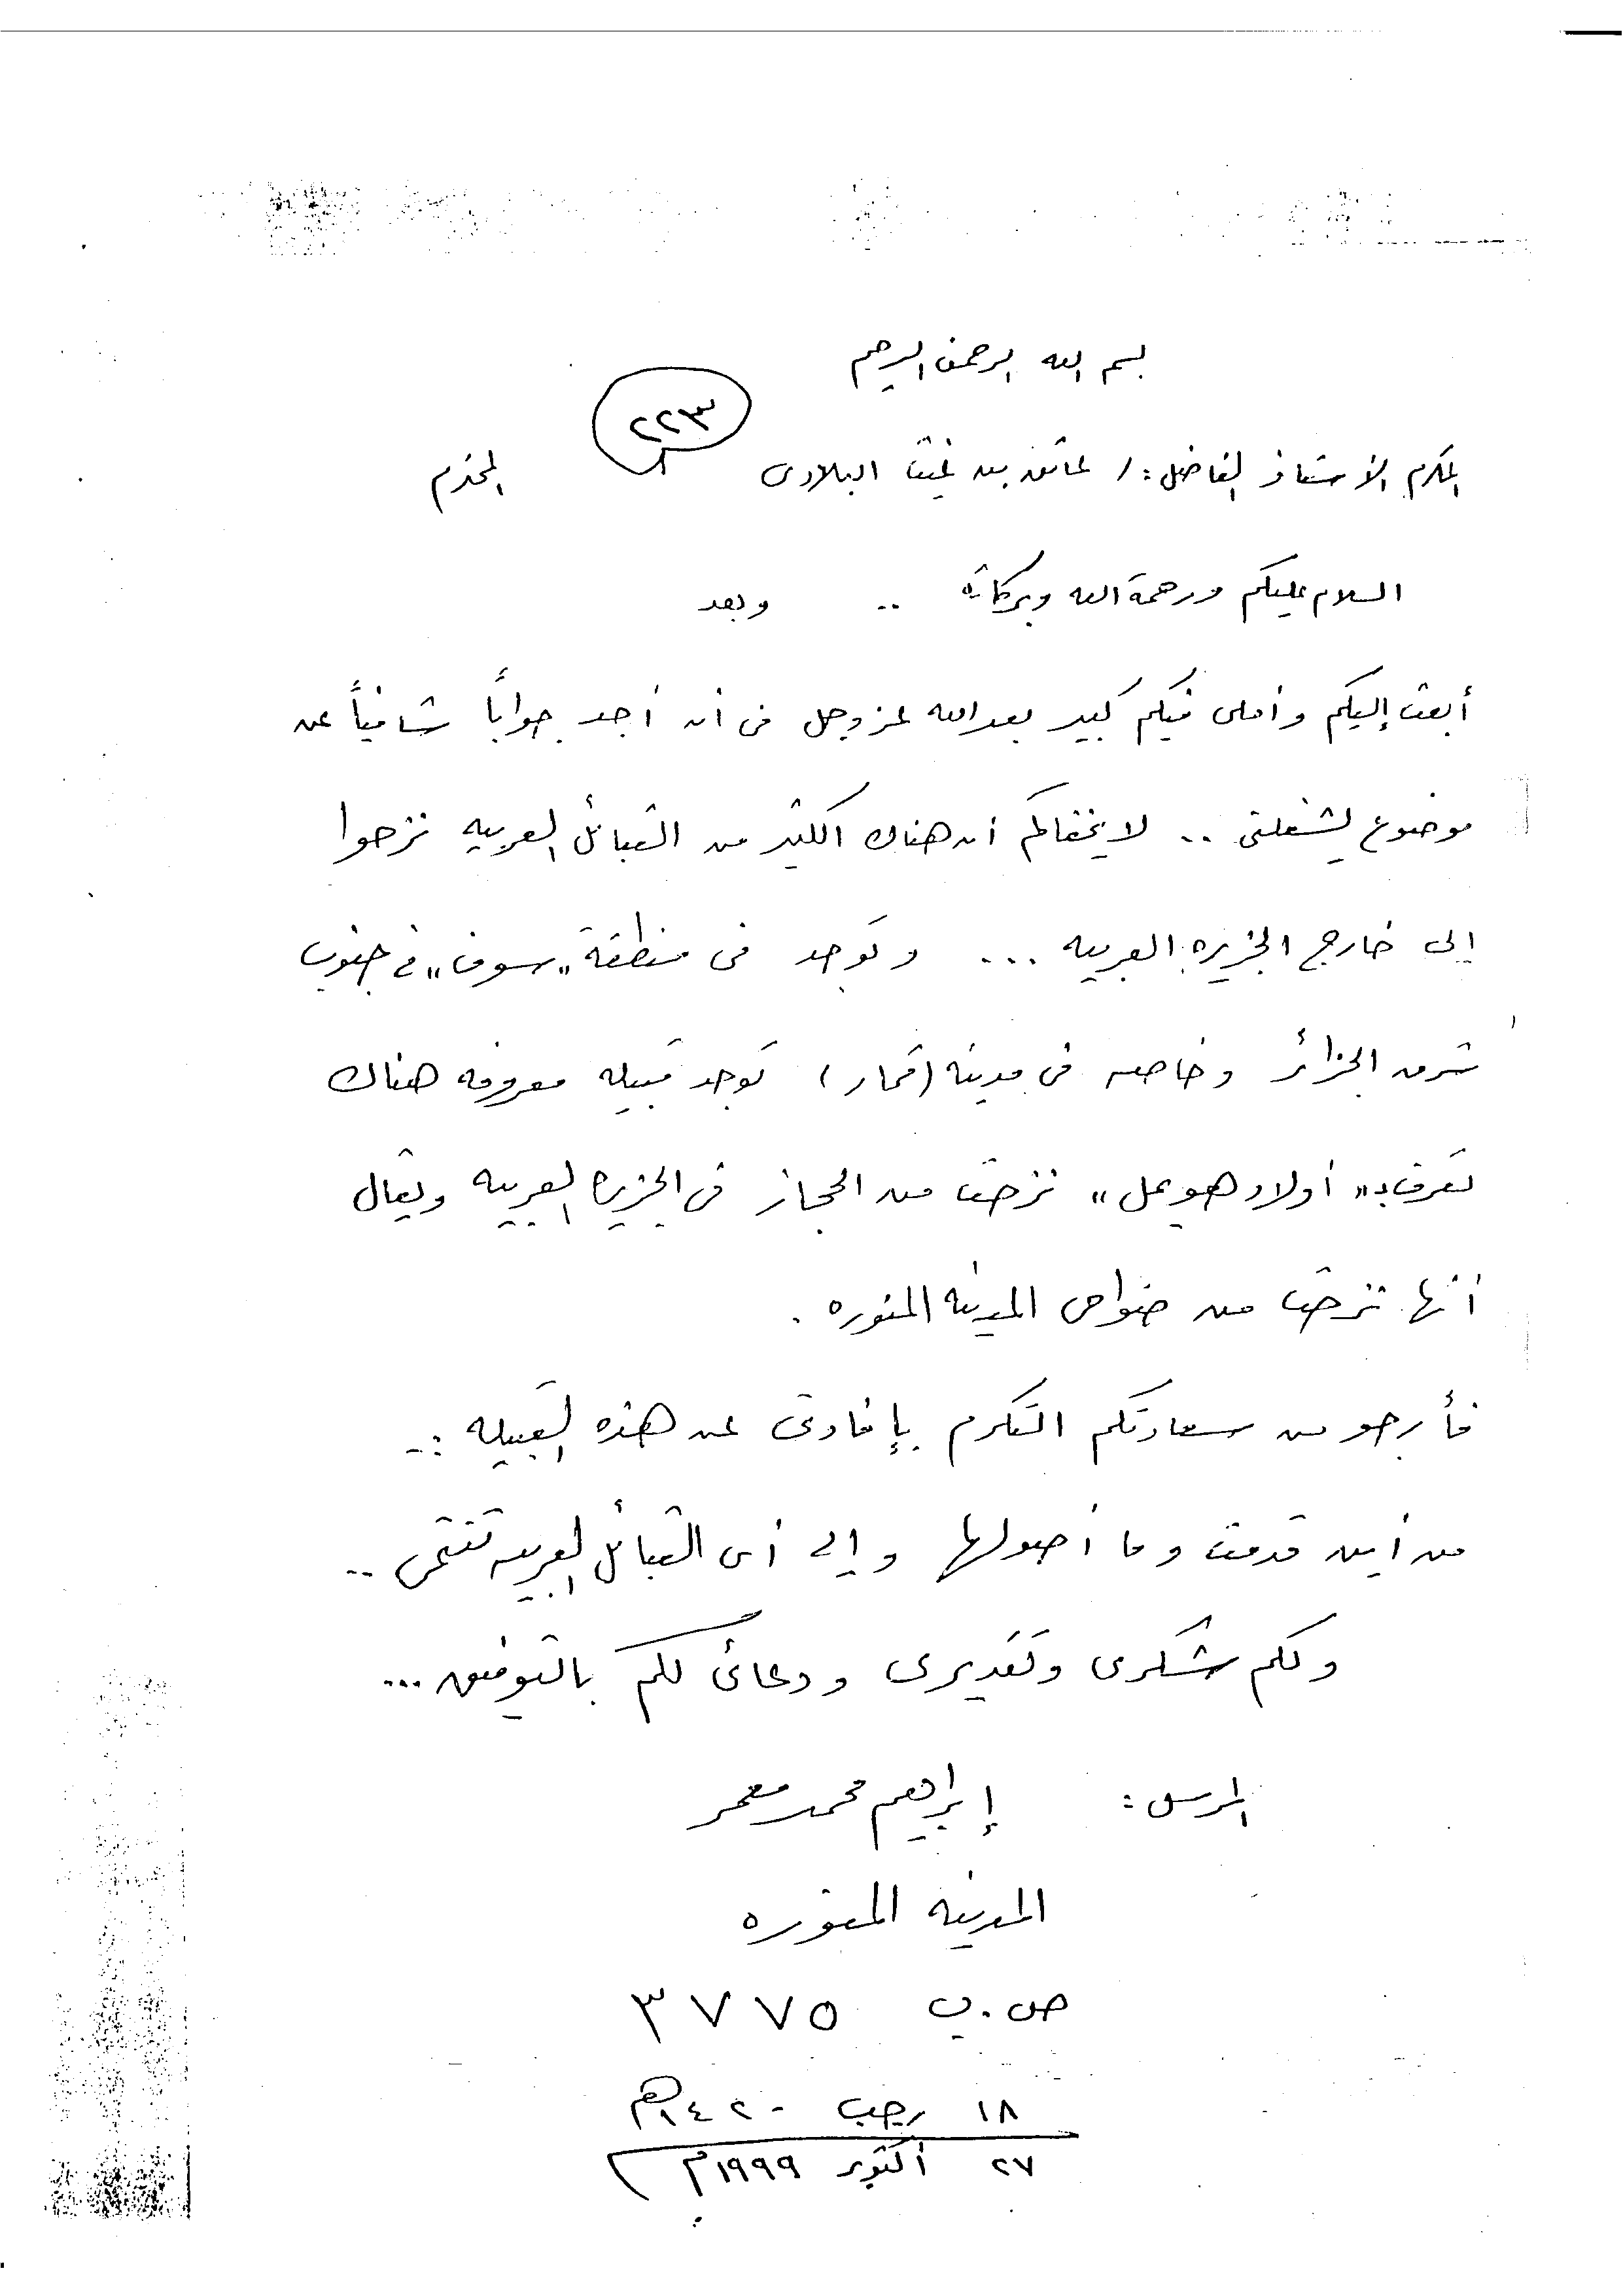 بسم الله الرحمن الرحيم
٢٢٣
المكرم الأستاذ الفاضل: / عاتق بن غيث البلادى المحترم
السلام عليكم ورحمة الله وبركاته .. وبعد
أبعث إليكم وأملى فيكم كبير بعد الله عز وجل فى أن أجد جواباً شافياً عن
موضوع يشغلنى .. لا يخفاكم أن هناك الكثير من القبائل العربيه نزحوا
إلى خارج الجزيره العربيه ... وتوجد فى منطقة "سوف" فى جنوب
شرق الجزائر وخاصه فى مدينه (قمار) توجد قبيله معروفه هناك
تعرف بـ "أولاد هويمل" نزحت من الحجاز فى الجزيره العربيه ويقال
أنها نزحت من ضواحى المدينه المنوره .
فأرجو من سعادتكم التكرم بإفادتى عن هذه القبيله :ـ
من أين قدمت وما أصولها وإلى أى القبائل العربيه تنتمى ..
ولكم شكرى وتقديرى ودعائى لكم بالتوفيق ...
المرسل : إبراهيم محمد معمر
المدينه المنوره
ص . ب ٣٧٧٥
١٨ رجب ١٤٢٠هـ
٢٧ أكتوبر ١٩٩٩م